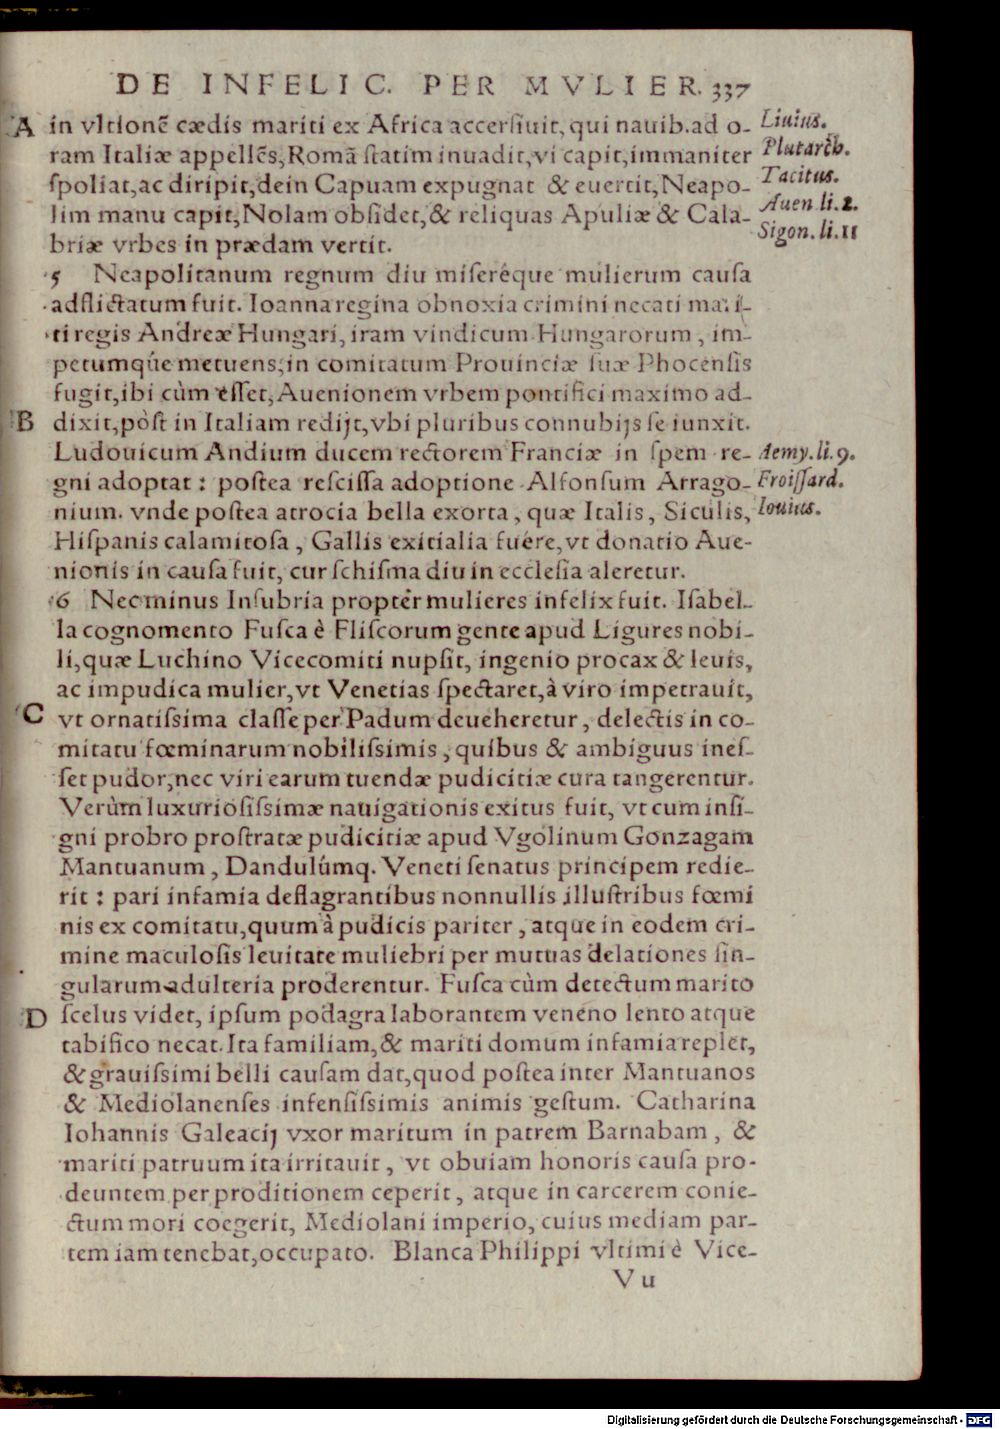 DE INFELIC. PER MVLIER. 337
A in vltionē cædis mariti ex Africa accersiuit, qui nauib. ad o-
ram Italiæ appellēs, Romā statim inuadit, vi capit, immaniter
spoliat, ac diripit, dein Capuam expugnat & euertit, Neapo-
lim manu capit, Nolam obsidet, & reliquas Apuliæ & Cala-
briæ vrbes in prædam vertit.
Liuius.
Plutarch.
Tacitus.
Auen li. 2.
Sigon. li. 11
5 Neapolitanum regnum diu miserêque mulierum causa
adflictatum fuit. Ioanna regina obnoxia crimini necati mari-
ti regis Andreæ Hungari, iram vindicum Hungarorum, im-
petumq́ue metuens, in comitatum Prouinciæ suæ Phocensis
fugit, ibi cùm esset, Auenionem vrbem pontifici maximo ad-
B dixit, pòst in Italiam redijt, vbi pluribus connubijs se iunxit.
Ludouicum Andium ducem rectorem Franciæ in spem re-
gni adoptat: postea rescissa adoptione Alfonsum Arrago-
nium. vnde postea atrocia bella exorta, quæ Italis, Siculis,
Hispanis calamitosa, Gallis exitialia fuêre, vt donatio Aue-
nionis in causa fuit, cur schisma diu in ecclesia aleretur.
Aemy. li. 9.
Froissard.
Iouius.
6 Nec minus Insubria propter mulieres infelix fuit. Isabel-
la cognomento Fusca è Fliscorum gente apud Ligures nobi-
li, quæ Luchino Vicecomiti nupsit, ingenio procax & leuis,
ac impudica mulier, vt Venetias spectaret, à viro impetrauit,
C vt ornatissima classe per Padum deueheretur, delectis in co-
mitatu fœminarum nobilissimis, quibus & ambiguus ines-
set pudor, nec viri earum tuendæ pudicitiæ cura tangerentur.
Verùm luxuriosissimæ nauigationis exitus fuit, vt cum insi-
gni probro prostratæ pudicitiæ apud Vgolinum Gonzagam
Mantuanum, Dandulúmq. Veneti senatus principem redie-
rit: pari infamia deflagrantibus nonnullis illustribus fœmi
nis ex comitatu, quum à pudicis pariter, atque in eodem cri-
mine maculosis leuitate muliebri per mutuas delationes sin-
gularum adulteria proderentur. Fusca cùm detectum marito
D scelus videt, ipsum podagra laborantem veneno lento atque
tabifico necat. Ita familiam, & mariti domum infamia replet,
& grauissimi belli causam dat, quod postea inter Mantuanos
& Mediolanenses infensissimis animis gestum. Catharina
Iohannis Galeacij vxor maritum in patrem Barnabam, &
mariti patruum ita irritauit, vt obuiam honoris causa pro-
deuntem per proditionem ceperit, atque in carcerem conie-
ctum mori coegerit, Mediolani imperio, cuius mediam par-
tem iam tenebat, occupato. Blanca Philippi vltimi è Vice-
V u
Digitalisierung gefördert durch die Deutsche Forschungsgemeinschaft - DFG